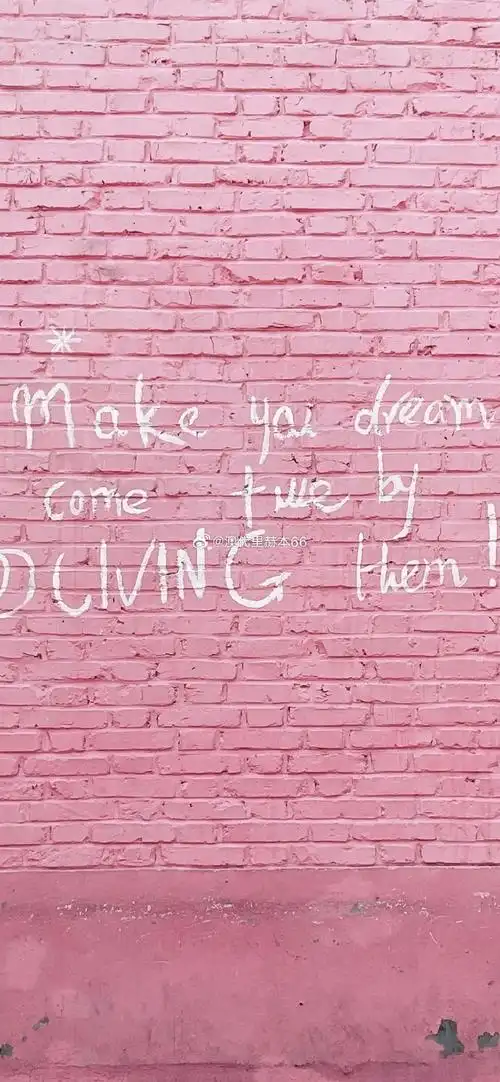 Make you dream
come true by
LIVING them!